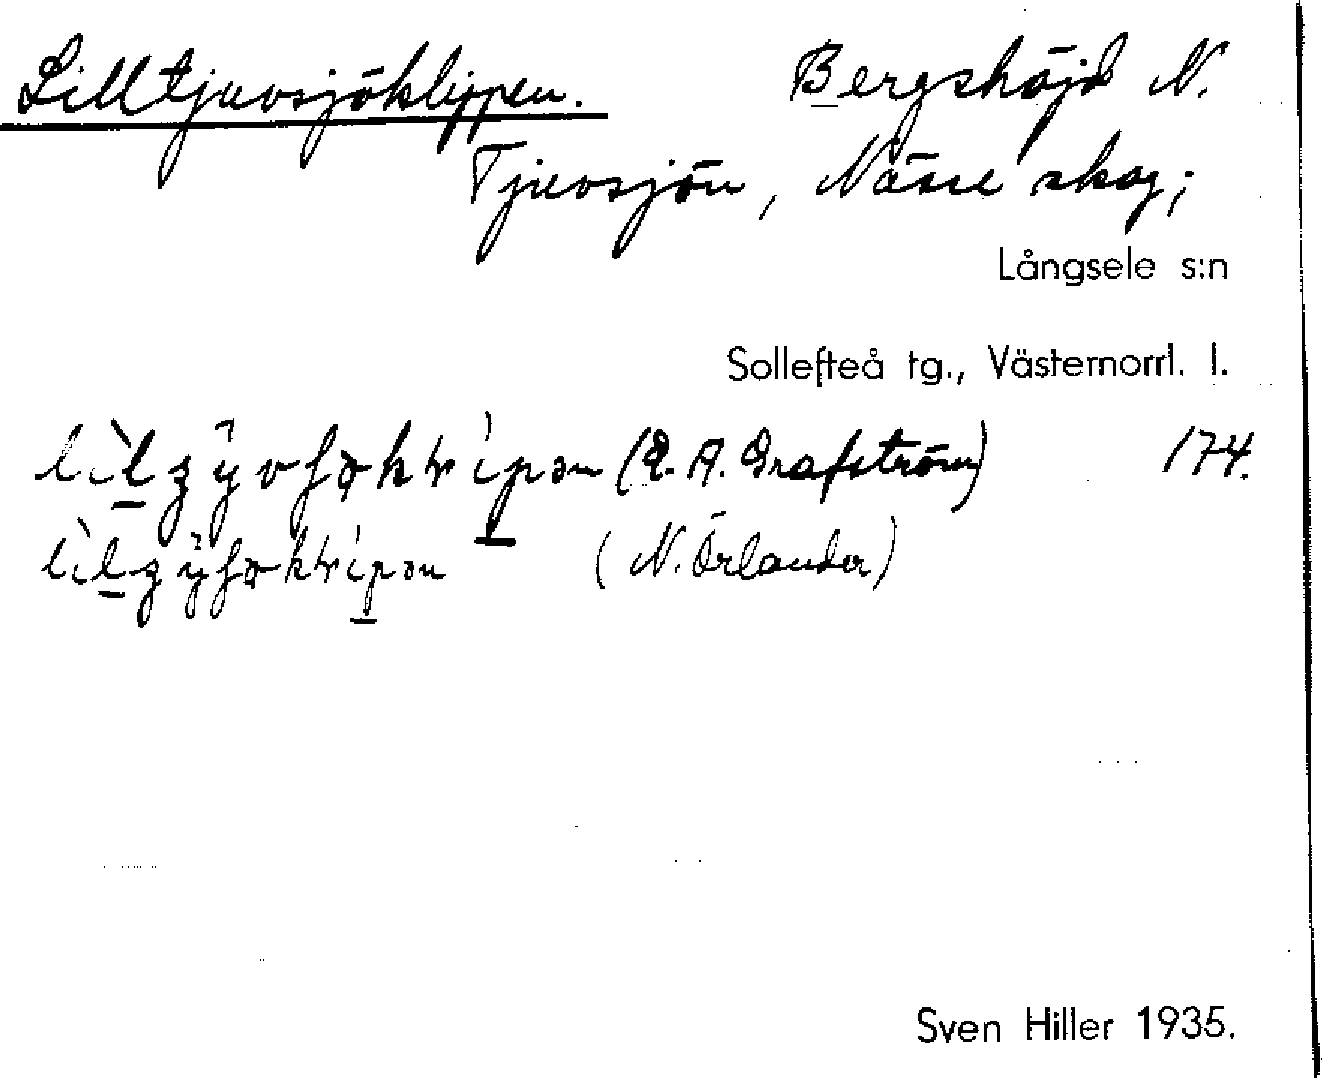 Lilltjuvsjöklippen. Bergshöjd N.
Tjuvsjön, Näsie skog;
Långsele s:n
Sollefteå tg., Västernorrl. l.
(E. A. Grafström) 174.
(N. Örlander)
Sven Hiller 1935.